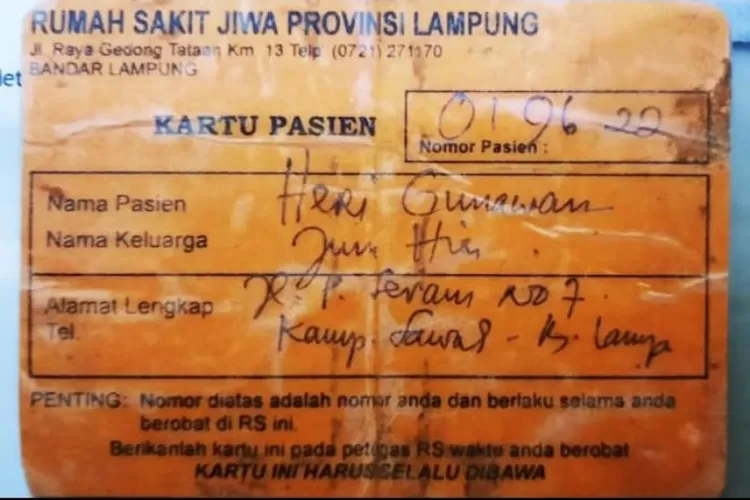 RUMAH SAKIT JIWA PROVINSI LAMPUNG
Jl. Raya Gedong Tataan Km 13 Telp (0721) 271170
BANDAR LAMPUNG
let
KARTU PASIEN
01 96 22
Nomor Pasien :
Nama Pasien Heri Gunawan
Nama Keluarga
Alamat Lengkap Jl. P. Seram No 7.
Tel. Kamp. Sawah -
PENTING: Nomor diatas adalah nomor anda dan berlaku selama anda
berobat di RS ini.
Berikanlah kartu ini pada petugas RS waktu anda berobat
KARTU INI HARUS SELALU DIBAWA